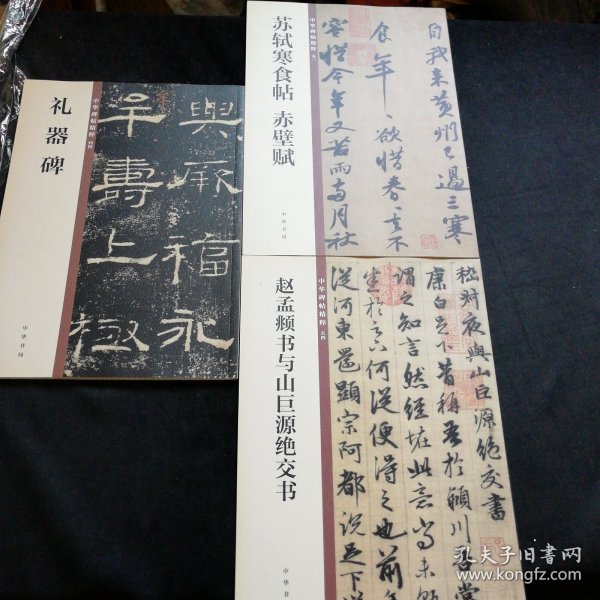 礼器碑
中华碑帖精粹
中华书局
興厥福永
平壽上極
苏轼寒食帖 赤壁赋
中华碑帖精粹
中华书局
自我来黄州已過三寒
食年欲惜春春去不
容惜今年又苦雨两月秋
赵孟頫书与山巨源绝交书
中华碑帖精粹
中华书
嵇叔夜與山巨源絶交書
康白足下昔稱吾於潁川吾嘗
謂之知言然經怪此意尚未
坐於
何從便得之也前年
從河東還顯宗阿都説足下
孔夫子旧书网
www.kongfz.com